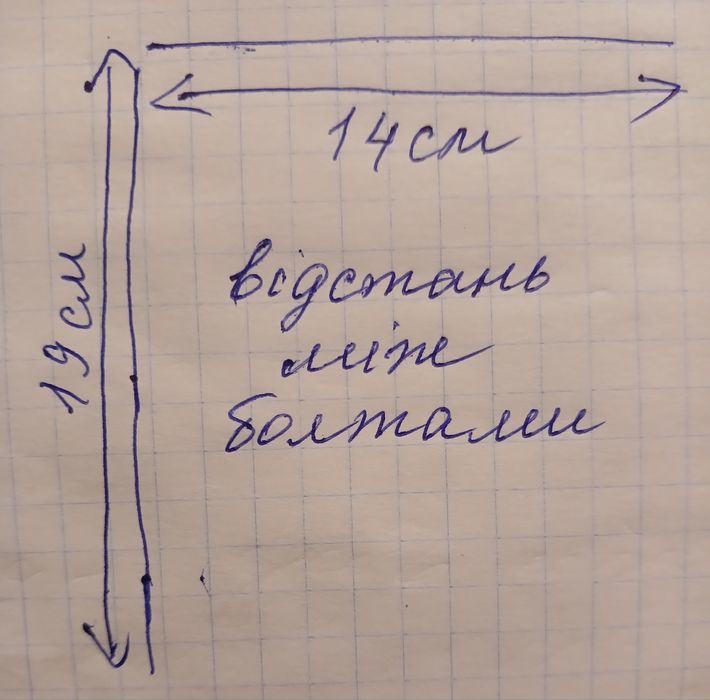 14 см
19 см
відстань
між
болтами